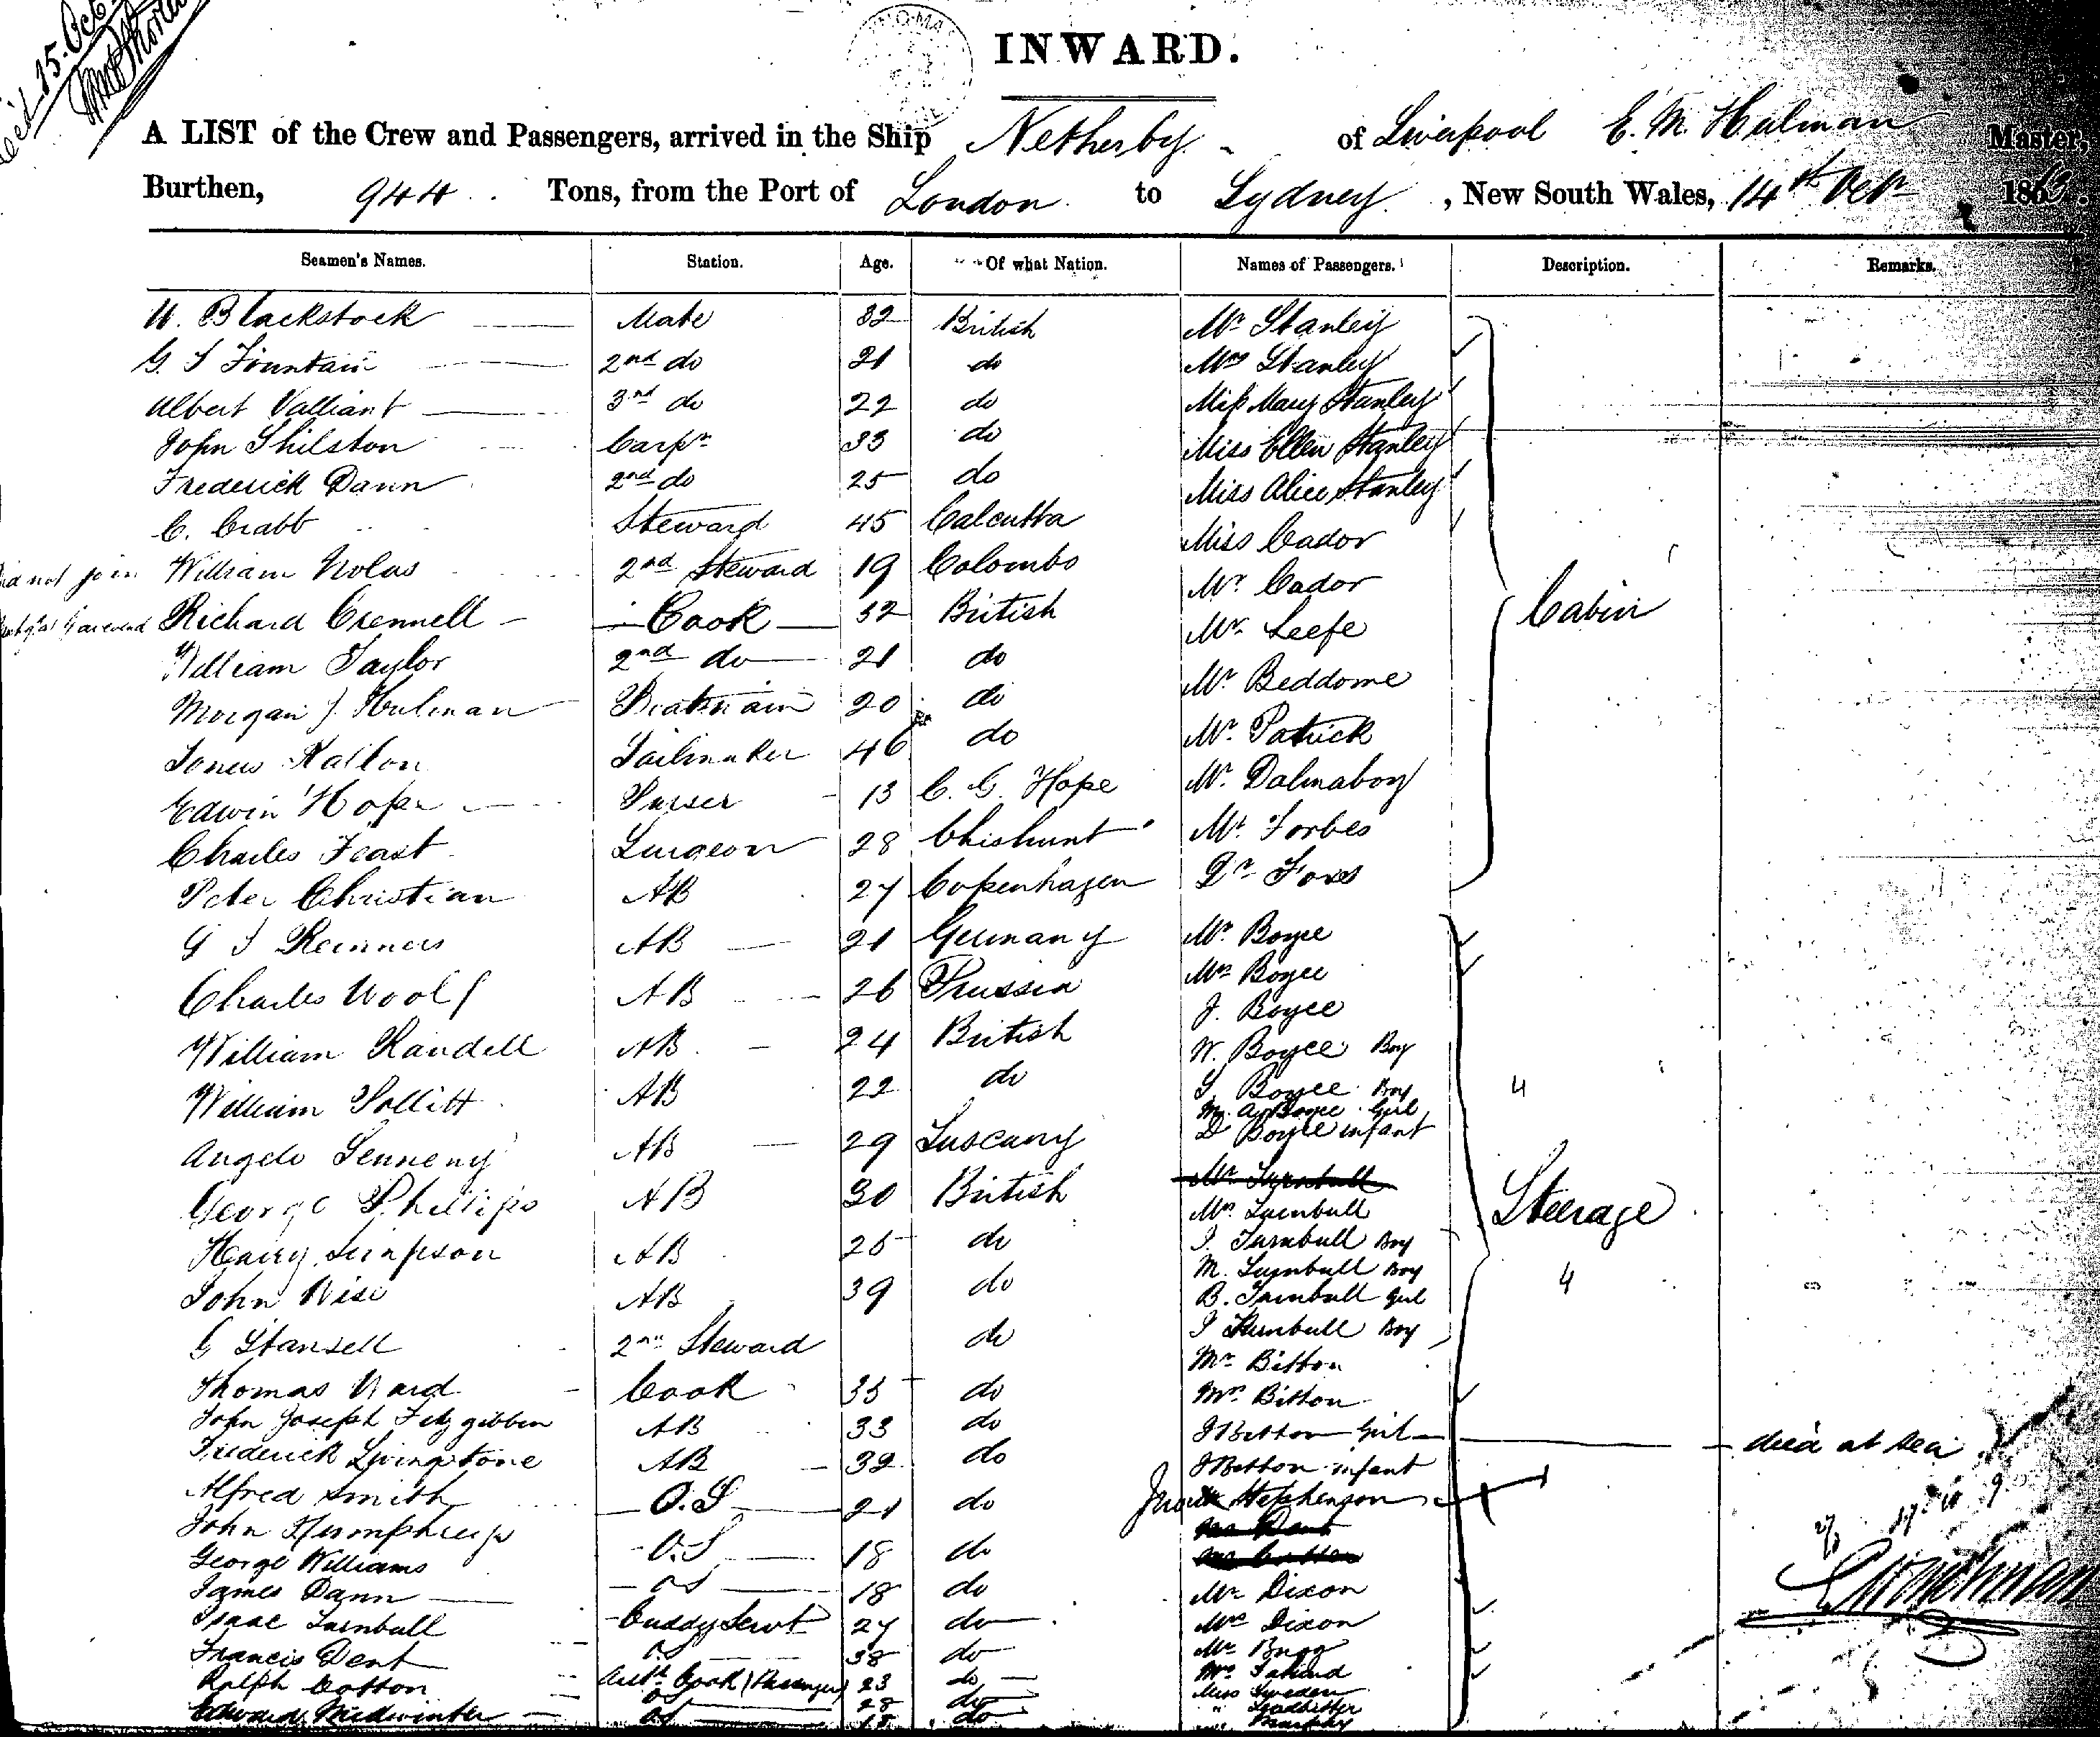 Rec'd 15. Oct.
INWARD.
A LIST of the Crew and Passengers, arrived in the Ship Netherby of Liverpool E. M. Hulman Master,
Burthen, 944 Tons, from the Port of London to Sydney, New South Wales, 14th Octr 186
Seamen's Names. Station. Age. Of what Nation. Names of Passengers. Description. Remarks.
Blackstock Mate 32 British Mr Stanley
G. I Fountain 2nd do 21 do Mrs Stanley
Albert Valliant 3rd do 22 do Miss Mary Stanley
John Shilston Carpr 33 do Miss Ellen Stanley
Frederick Dann 2nd do 25 do Miss Alice Stanley
C. Crabb Steward 45 Calcutta Miss Cador
did not join William Nolas 2nd Steward 19 Colombo Mr Cador
Richard Crennell Cook 32 British Mr Leefe Cabin
William Taylor 2nd do 21 do Mr Beddome
Morgan J. Hulman 20 do Mr Patrick
Kallon Sailmaker 46 do Mr Dalmahoy
Edwin Hope Purser 13 C. G. Hope Mr Forbes
Charles Feast Surgeon 28 Chishunt Dr Foxs
Peter Christian AB 27 Copenhagen
G I Reinners AB 21 Germany Mr Boyce
Charles Woolf AB 26 Prussia Mrs Boyce
J. Boyce
William Randell AB 24 British W. Boyce Boy
William Pollitt AB 22 do Boyce Boy 4
M. A. Boyce Girl
Angelo Senneny AB 29 Tuscany D Boyce infant
Mr Turnbull
George Phillips AB 30 British Mrs Turnbull Steerage
Henry Simpson AB 25 do I. Turnbull Boy
M. Turnbull Boy
John Wise AB 39 do B. Turnbull Girl 4
G Stansell 2nd Steward do I Turnbull Boy
Mr Bitton
Thomas Ward Cook 35 do Mrs Bitton
John Joseph Fitzgibbin AB 33 do Bitton Girl died at sea
Frederick Livingstone AB 39 do Bitton infant
Alfred Smith O.S 21 do Stephenson
John Humphreys O.S 18 do
George Williams OS 18 do Mr Dixon
James Dann Cuddy Servt 27 do Mrs Dixon
Isaac Turnbull OS 38 do Mr Bugg
Francis Dent Asst Cook (Passenger) 23 do Mrs
Ralph Cotton OS 28 do Miss Sweden
Edward Midwinter OS 18 do Murphy